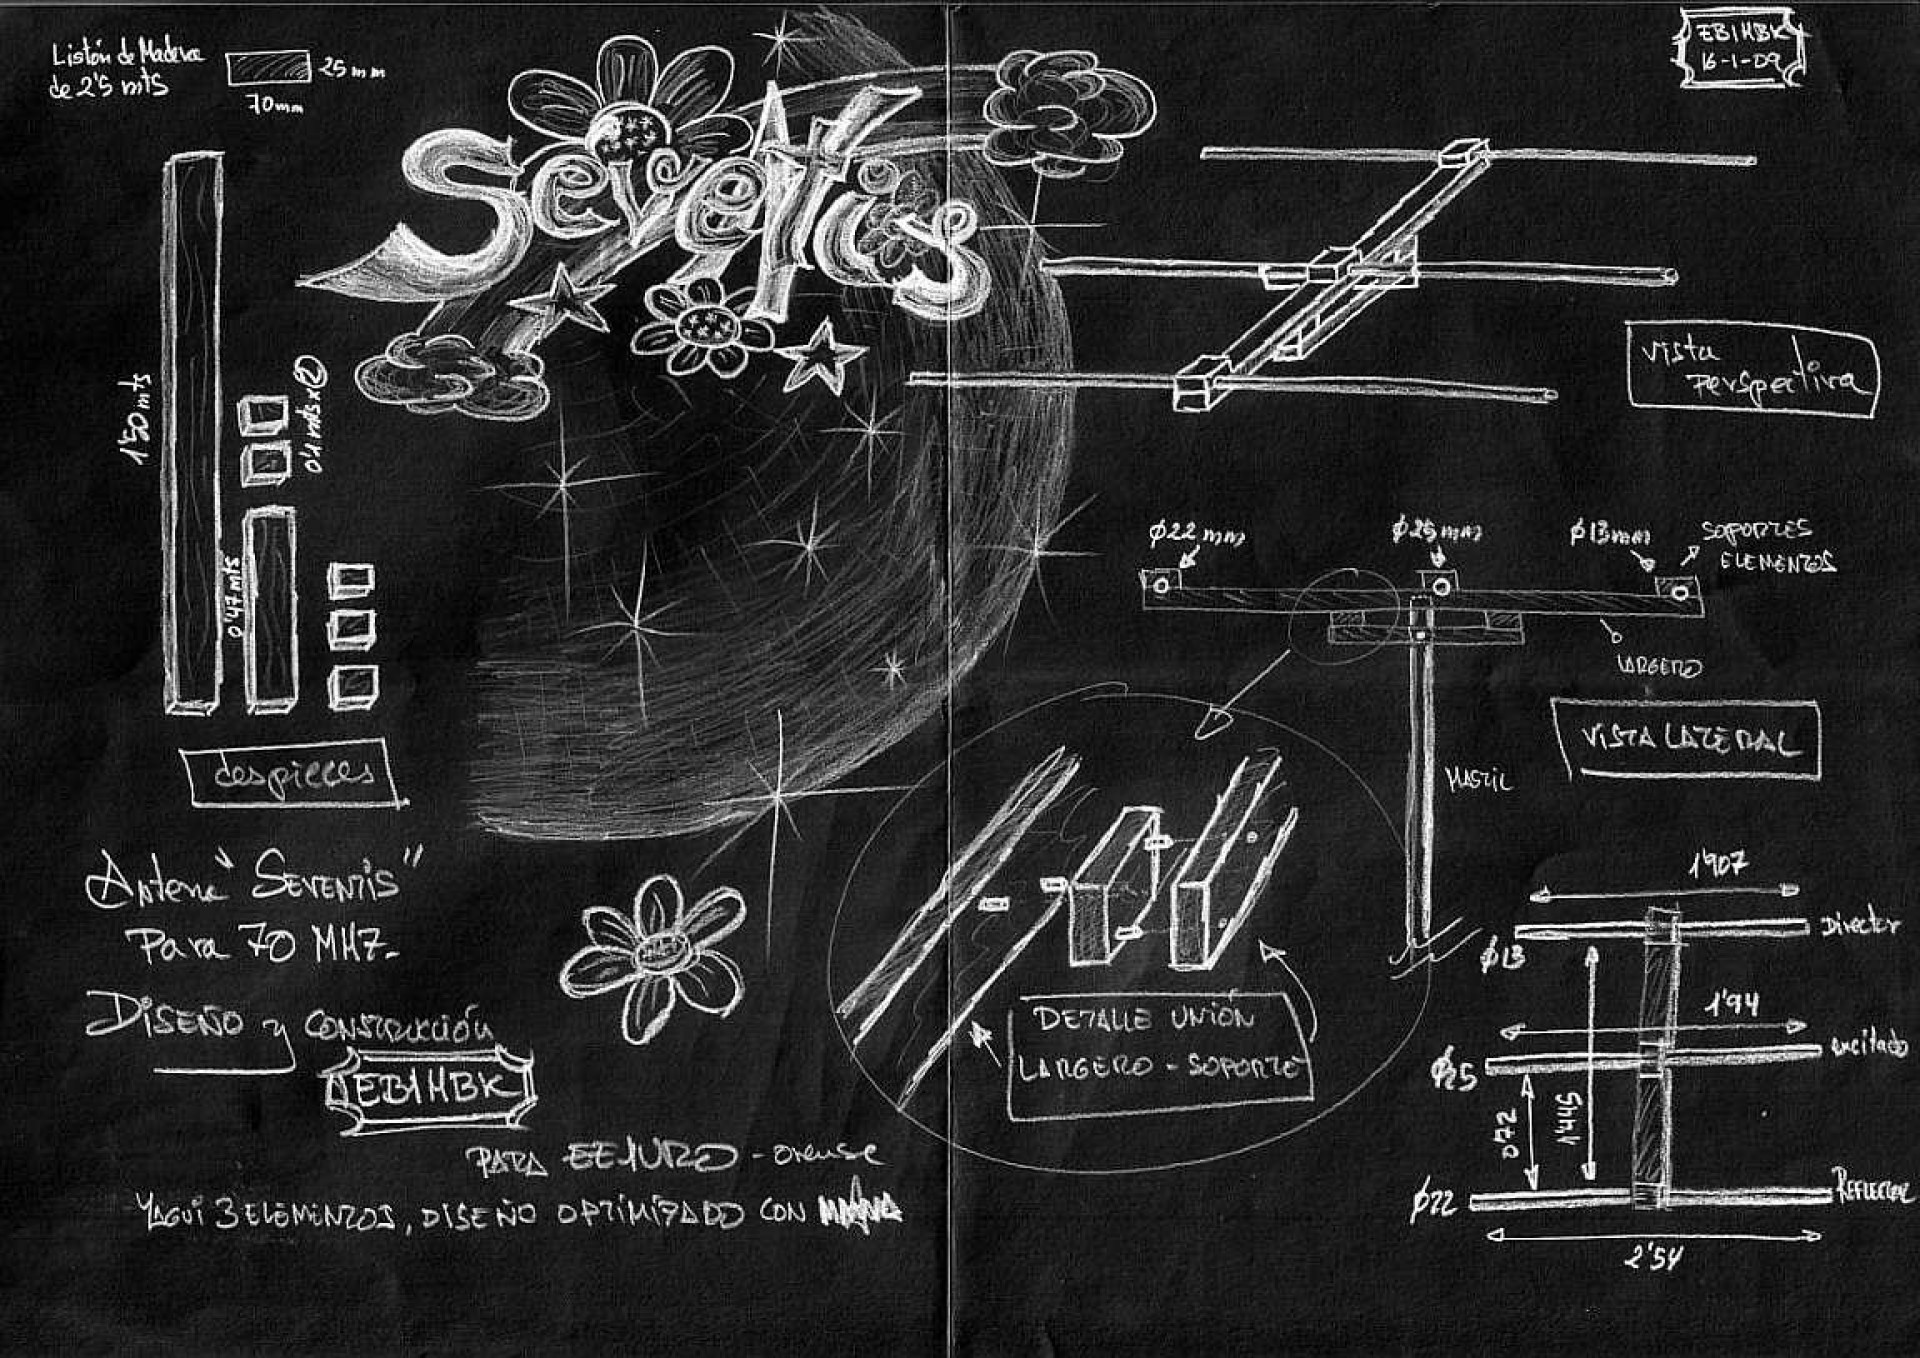 Listón de Madera
de 2'5 mts
25 mm
70mm
SeveNtis
EB1HBK
16-1-09
vista
Perspectiva
1'50 mts
0'1 mts x2
0'47 mts
despieces
Ø22 mm
Ø25 mm
Ø13 mm
SOPORTES
ELEMENTOS
LARGERO
VISTA LATERAL
MASTIL
DETALLE UNIÓN
LARGERO - SOPORTE
Antena "SEVENTIS"
Para 70 MHZ-
DISEÑO y CONSTRUCCIÓN
EB1HBK
PARA EE1URO - orense
YAGUI 3 ELEMENTOS, DISEÑO OPTIMIZADO CON
1'907
Director
Ø13
1'94
excitado
Ø25
0'72
1'445
Ø22
REFLECTOR
2'54